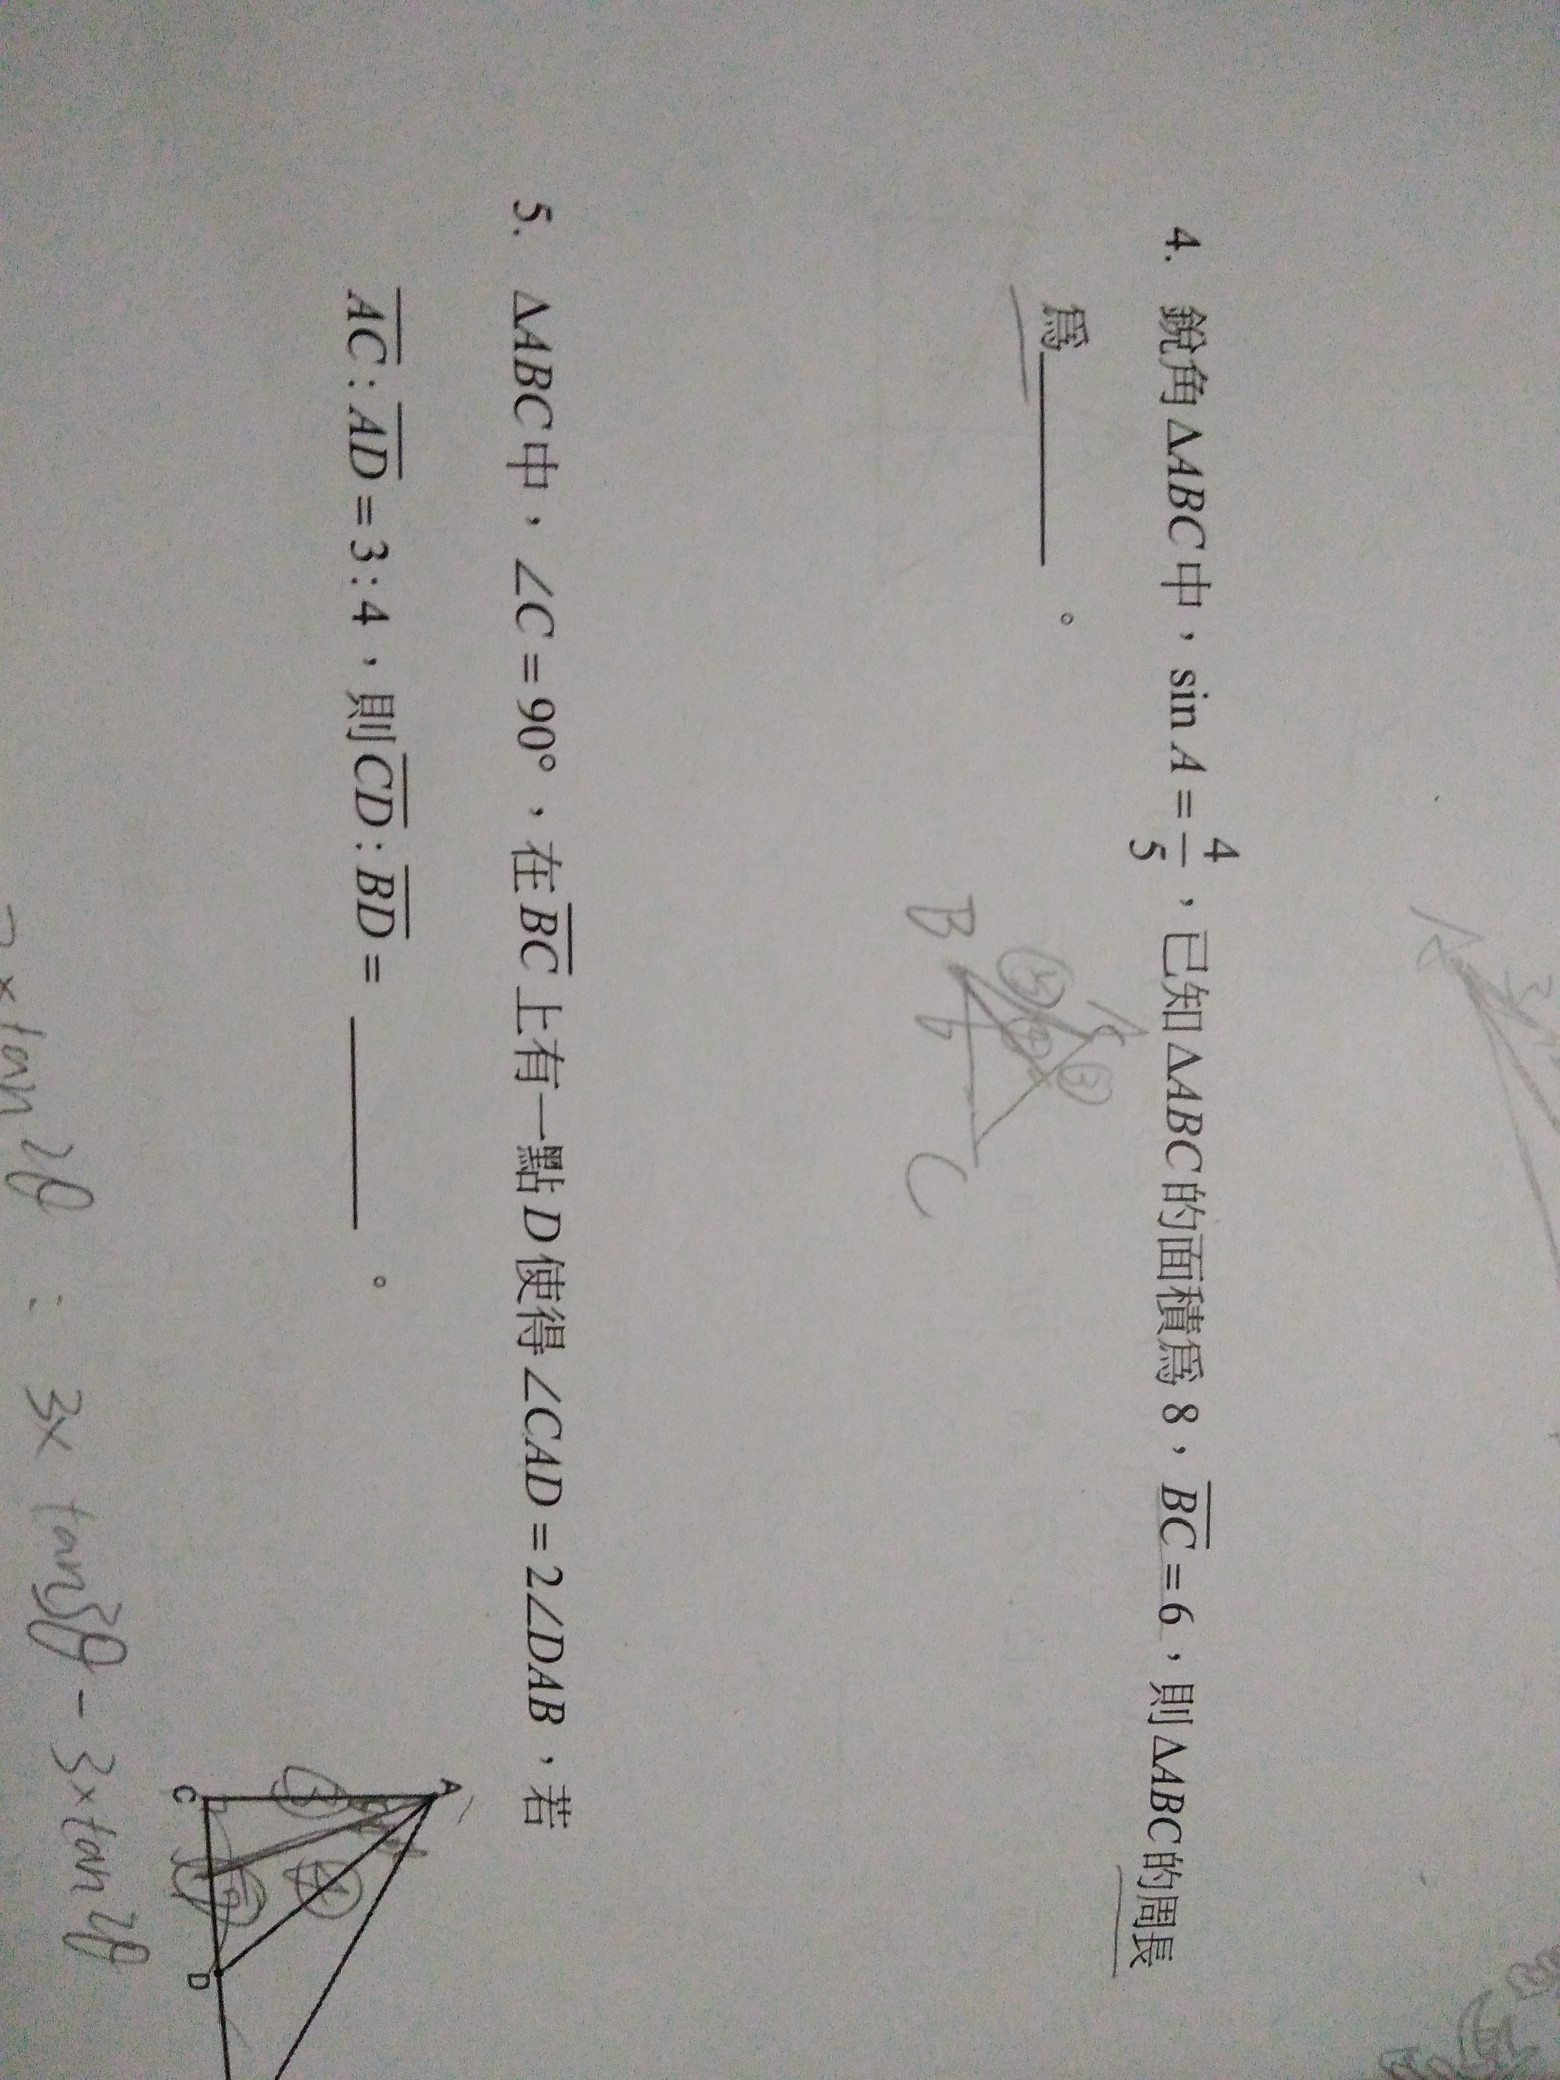 4. 銳角 ΔABC 中，sin A = 4/5，已知 ΔABC 的面積爲 8，BC = 6，則 ΔABC 的周長
爲________。
B 6 C
5. ΔABC 中，∠C = 90°，在 BC 上有一點 D 使得 ∠CAD = 2∠DAB，若
AC : AD = 3 : 4，則 CD : BD = ________。
A
③ ④
C D
×tan2θ : 3×tan3θ - 3×tan2θ